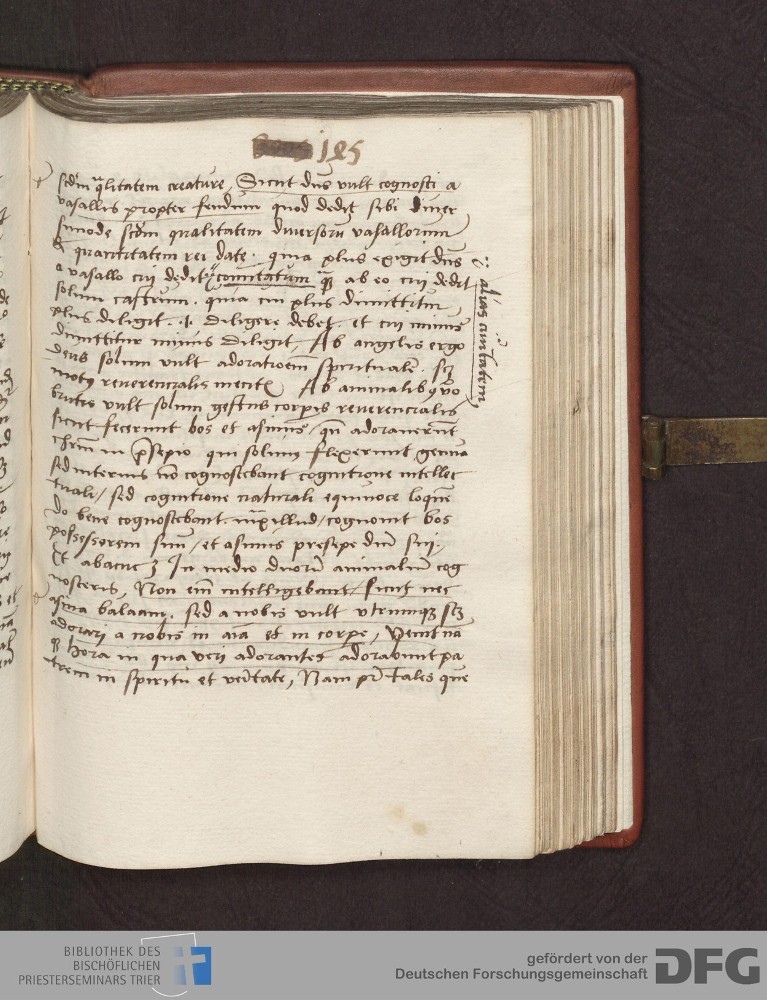 185
scdm qlitatem creature, Sicut dns vult cognosci a
vasallis propter feudum quod dedit sibi diuer
simode scdm qualitatem diuersoru vasallorum
& quantitatem rei date. quia plus exigit dns
a vasallo cui dedit comitatum qz ab eo cui dedit
solum castrum. quia cui plus dimittitur,
plus diligit. .i. diligere debet. et cui minus
dimittitur minus diligit, Ab angelis ergo
deus solum vult adorationem spiritualem. scz
motus reuerencialis mentis Ab animalibus vero
brutis vult solum gestus corporis reuerencialis
sicut fecerunt bos et asinus, qn adorauerunt
Christum in presepio qui solum flexerunt genua
sed interius no cognoscebant cognitione intellec
tuali, sed cognitione naturali equiuoce loquen
do bene cognoscebant. iuxta illud, cognouit bos
possessorem suu, et asinus presepe dni sui.
Et abacuc 3 In medio duoru animaliu cog
nosceris, Non eni intelligebant, sicut nec
asina balaam. sed a nobis vult vtrumqz scz
adorari a nobis in aia et in corpe, Venit na
qz hora in qua veri adorantes adorabunt pa
trem in spiritu et veritate, Nam pr tales que
alias ciuitatem
BIBLIOTHEK DES
BISCHÖFLICHEN
PRIESTERSEMINARS TRIER
gefördert von der
Deutschen Forschungsgemeinschaft
DFG